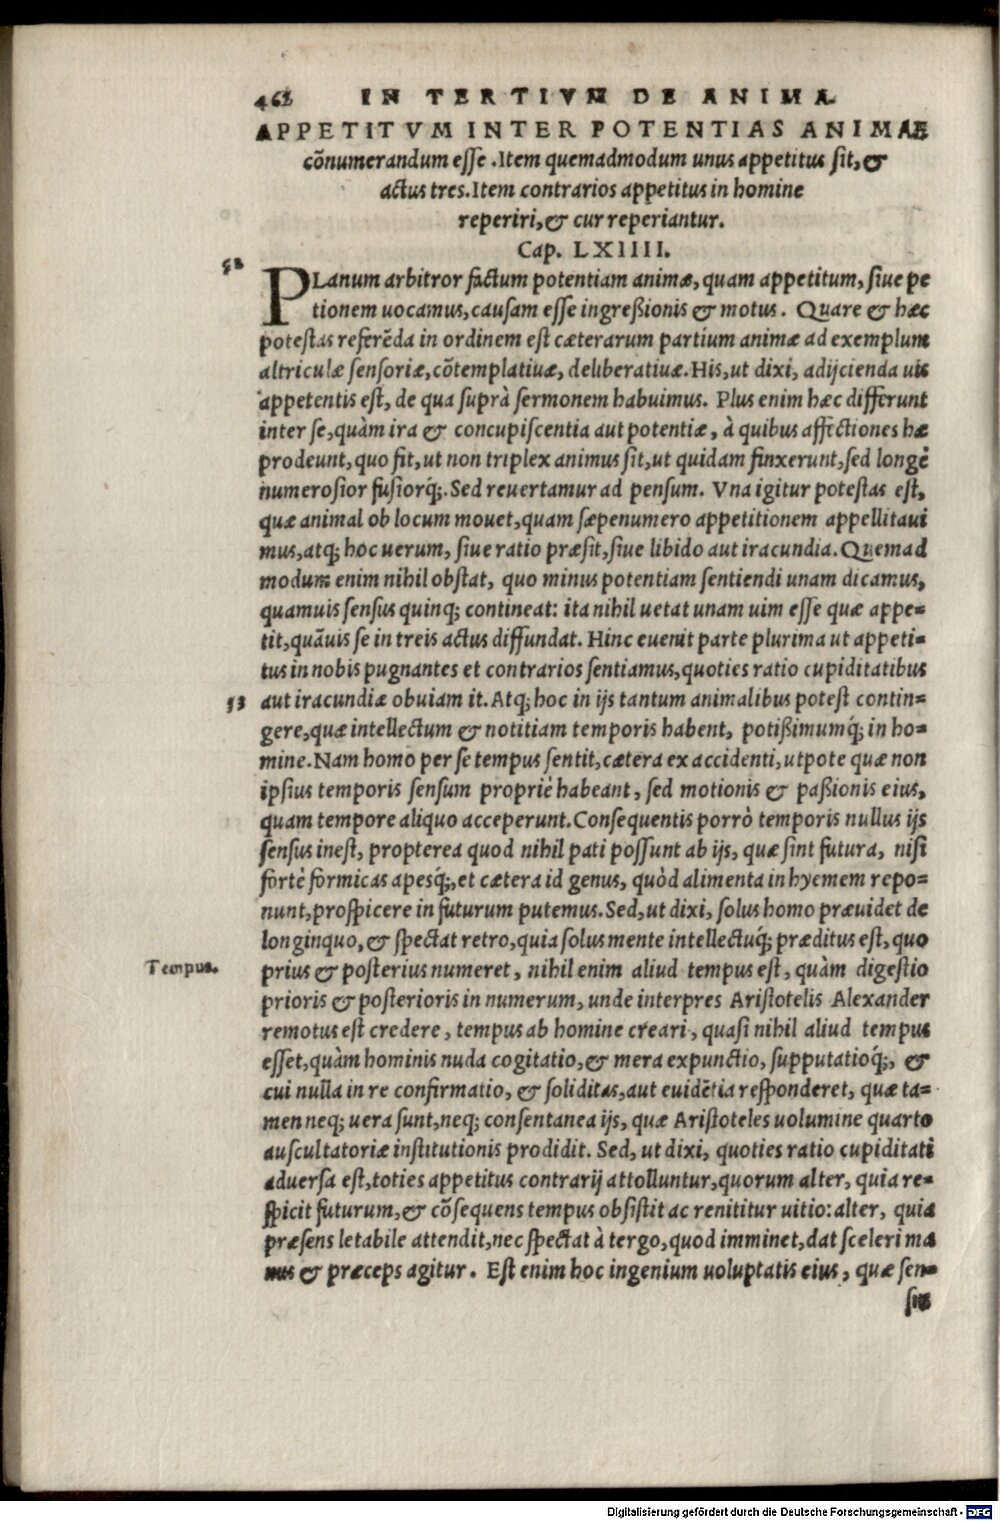 462 IN TERTIVM DE ANIMA
APPETITVM INTER POTENTIAS ANIMAE
cõnumerandum esse. Item quemadmodum unus appetitus sit, &
actus tres. Item contrarios appetitus in homine
reperiri, & cur reperiantur.
Cap. LXIIII.
52
PLanum arbitror factum potentiam animæ, quam appetitum, siue pe
tionem uocamus, causam esse ingreßionis & motus. Quare & hæc
potestas referẽda in ordinem est cæterarum partium animæ ad exemplum
altriculæ sensoriæ, cõtemplatiuæ, deliberatiuæ. His, ut dixi, adijcienda uis
appetentis est, de qua suprà sermonem habuimus. Plus enim hæc differunt
inter se, quàm ira & concupiscentia aut potentiæ, à quibus affectiones hæ
prodeunt, quo fit, ut non triplex animus sit, ut quidam finxerunt, sed longè
numerosior fusiorq́;. Sed reuertamur ad pensum. Vna igitur potestas est,
quæ animal ob locum mouet, quam sæpenumero appetitionem appellitaui
mus, atq; hoc uerum, siue ratio præsit, siue libido aut iracundia. Quemad
modum enim nihil obstat, quo minus potentiam sentiendi unam dicamus,
quamuis sensus quinq; contineat: ita nihil uetat unam uim esse quæ appe=
tit, quãuis se in treis actus diffundat. Hinc euenit parte plurima ut appeti=
tus in nobis pugnantes et contrarios sentiamus, quoties ratio cupiditatibus
53 aut iracundiæ obuiam it. Atq; hoc in ijs tantum animalibus potest contin=
gere, quæ intellectum & notitiam temporis habent, potißimumq́; in ho=
mine. Nam homo per se tempus sentit, cætera ex accidenti, utpote quæ non
ipsius temporis sensum propriè habeant, sed motionis & paßionis eius,
quam tempore aliquo acceperunt. Consequentis porrò temporis nullus ijs
sensus inest, propterea quod nihil pati possunt ab ijs, quæ sint futura, nisi
fortè formicas apesq́;, et cætera id genus, quòd alimenta in hyemem repo=
nunt, prospicere in futurum putemus. Sed, ut dixi, solus homo præuidet de
longinquo, & spectat retro, quia solus mente intellectuq́; præditus est, quo
Tempus. prius & posterius numeret, nihil enim aliud tempus est, quàm digestio
prioris & posterioris in numerum, unde interpres Aristotelis Alexander
remotus est credere, tempus ab homine creari, quasi nihil aliud tempus
esset, quàm hominis nuda cogitatio, & mera expunctio, supputatioq́;, &
cui nulla in re confirmatio, & soliditas, aut euidẽtia responderet, quæ ta=
men neq; uera sunt, neq; consentanea ijs, quæ Aristoteles uolumine quarto
auscultatoriæ institutionis prodidit. Sed, ut dixi, quoties ratio cupiditati
aduersa est, toties appetitus contrarij attolluntur, quorum alter, quia re=
spicit futurum, & cõsequens tempus obsistit ac renititur uitio: alter, quia
præsens letabile attendit, nec spectat à tergo, quod imminet, dat sceleri ma
nus & præceps agitur. Est enim hoc ingenium uoluptatis eius, quæ sen=
sus